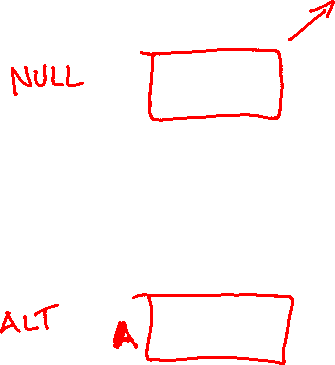 NULL
ALT
A